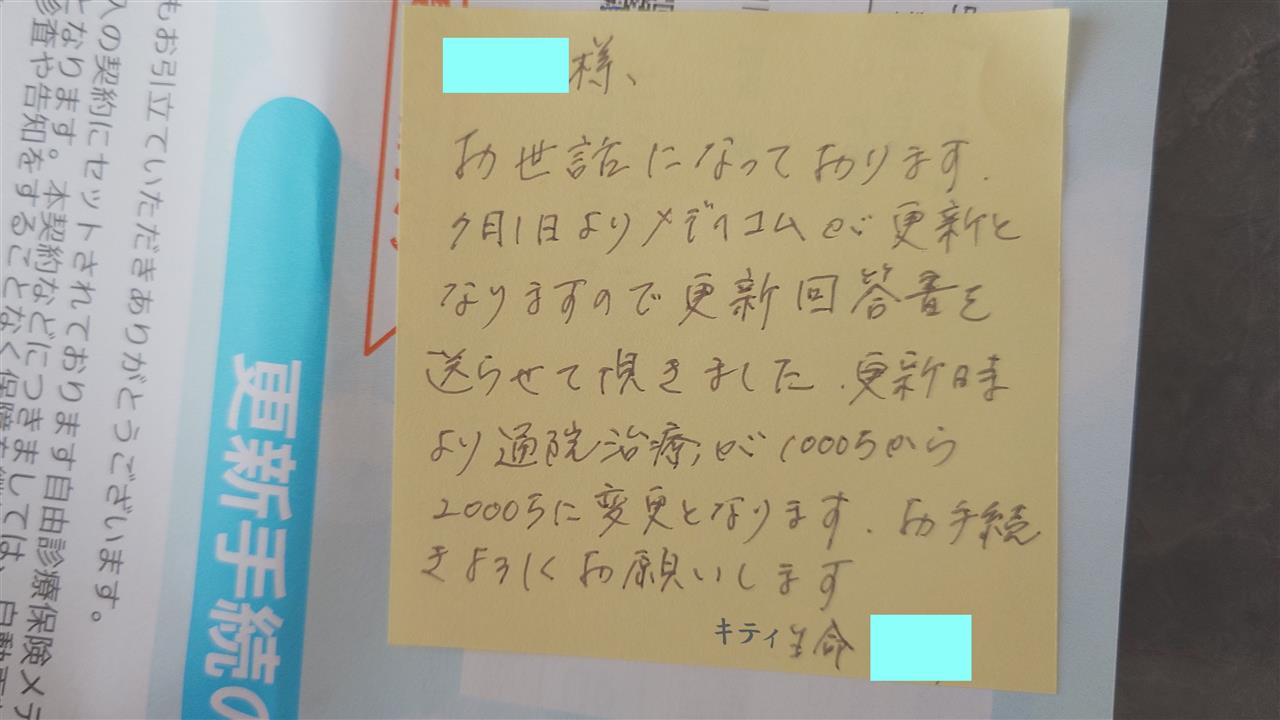 様、
お世話になっております.
7月1日よりメディコムが更新と
なりますので更新回答書を
送らせて頂きました.更新時
より通院治療が1000万から
2000万に変更となります.お手続
きよろしくお願いします
キティ生命
もお引立ていただきありがとうございます。
入の契約にセットされております自由診療保険メデ
となります。本契約などにつきましては、自動更
診査や告知をすることなく保障を
更新手続の